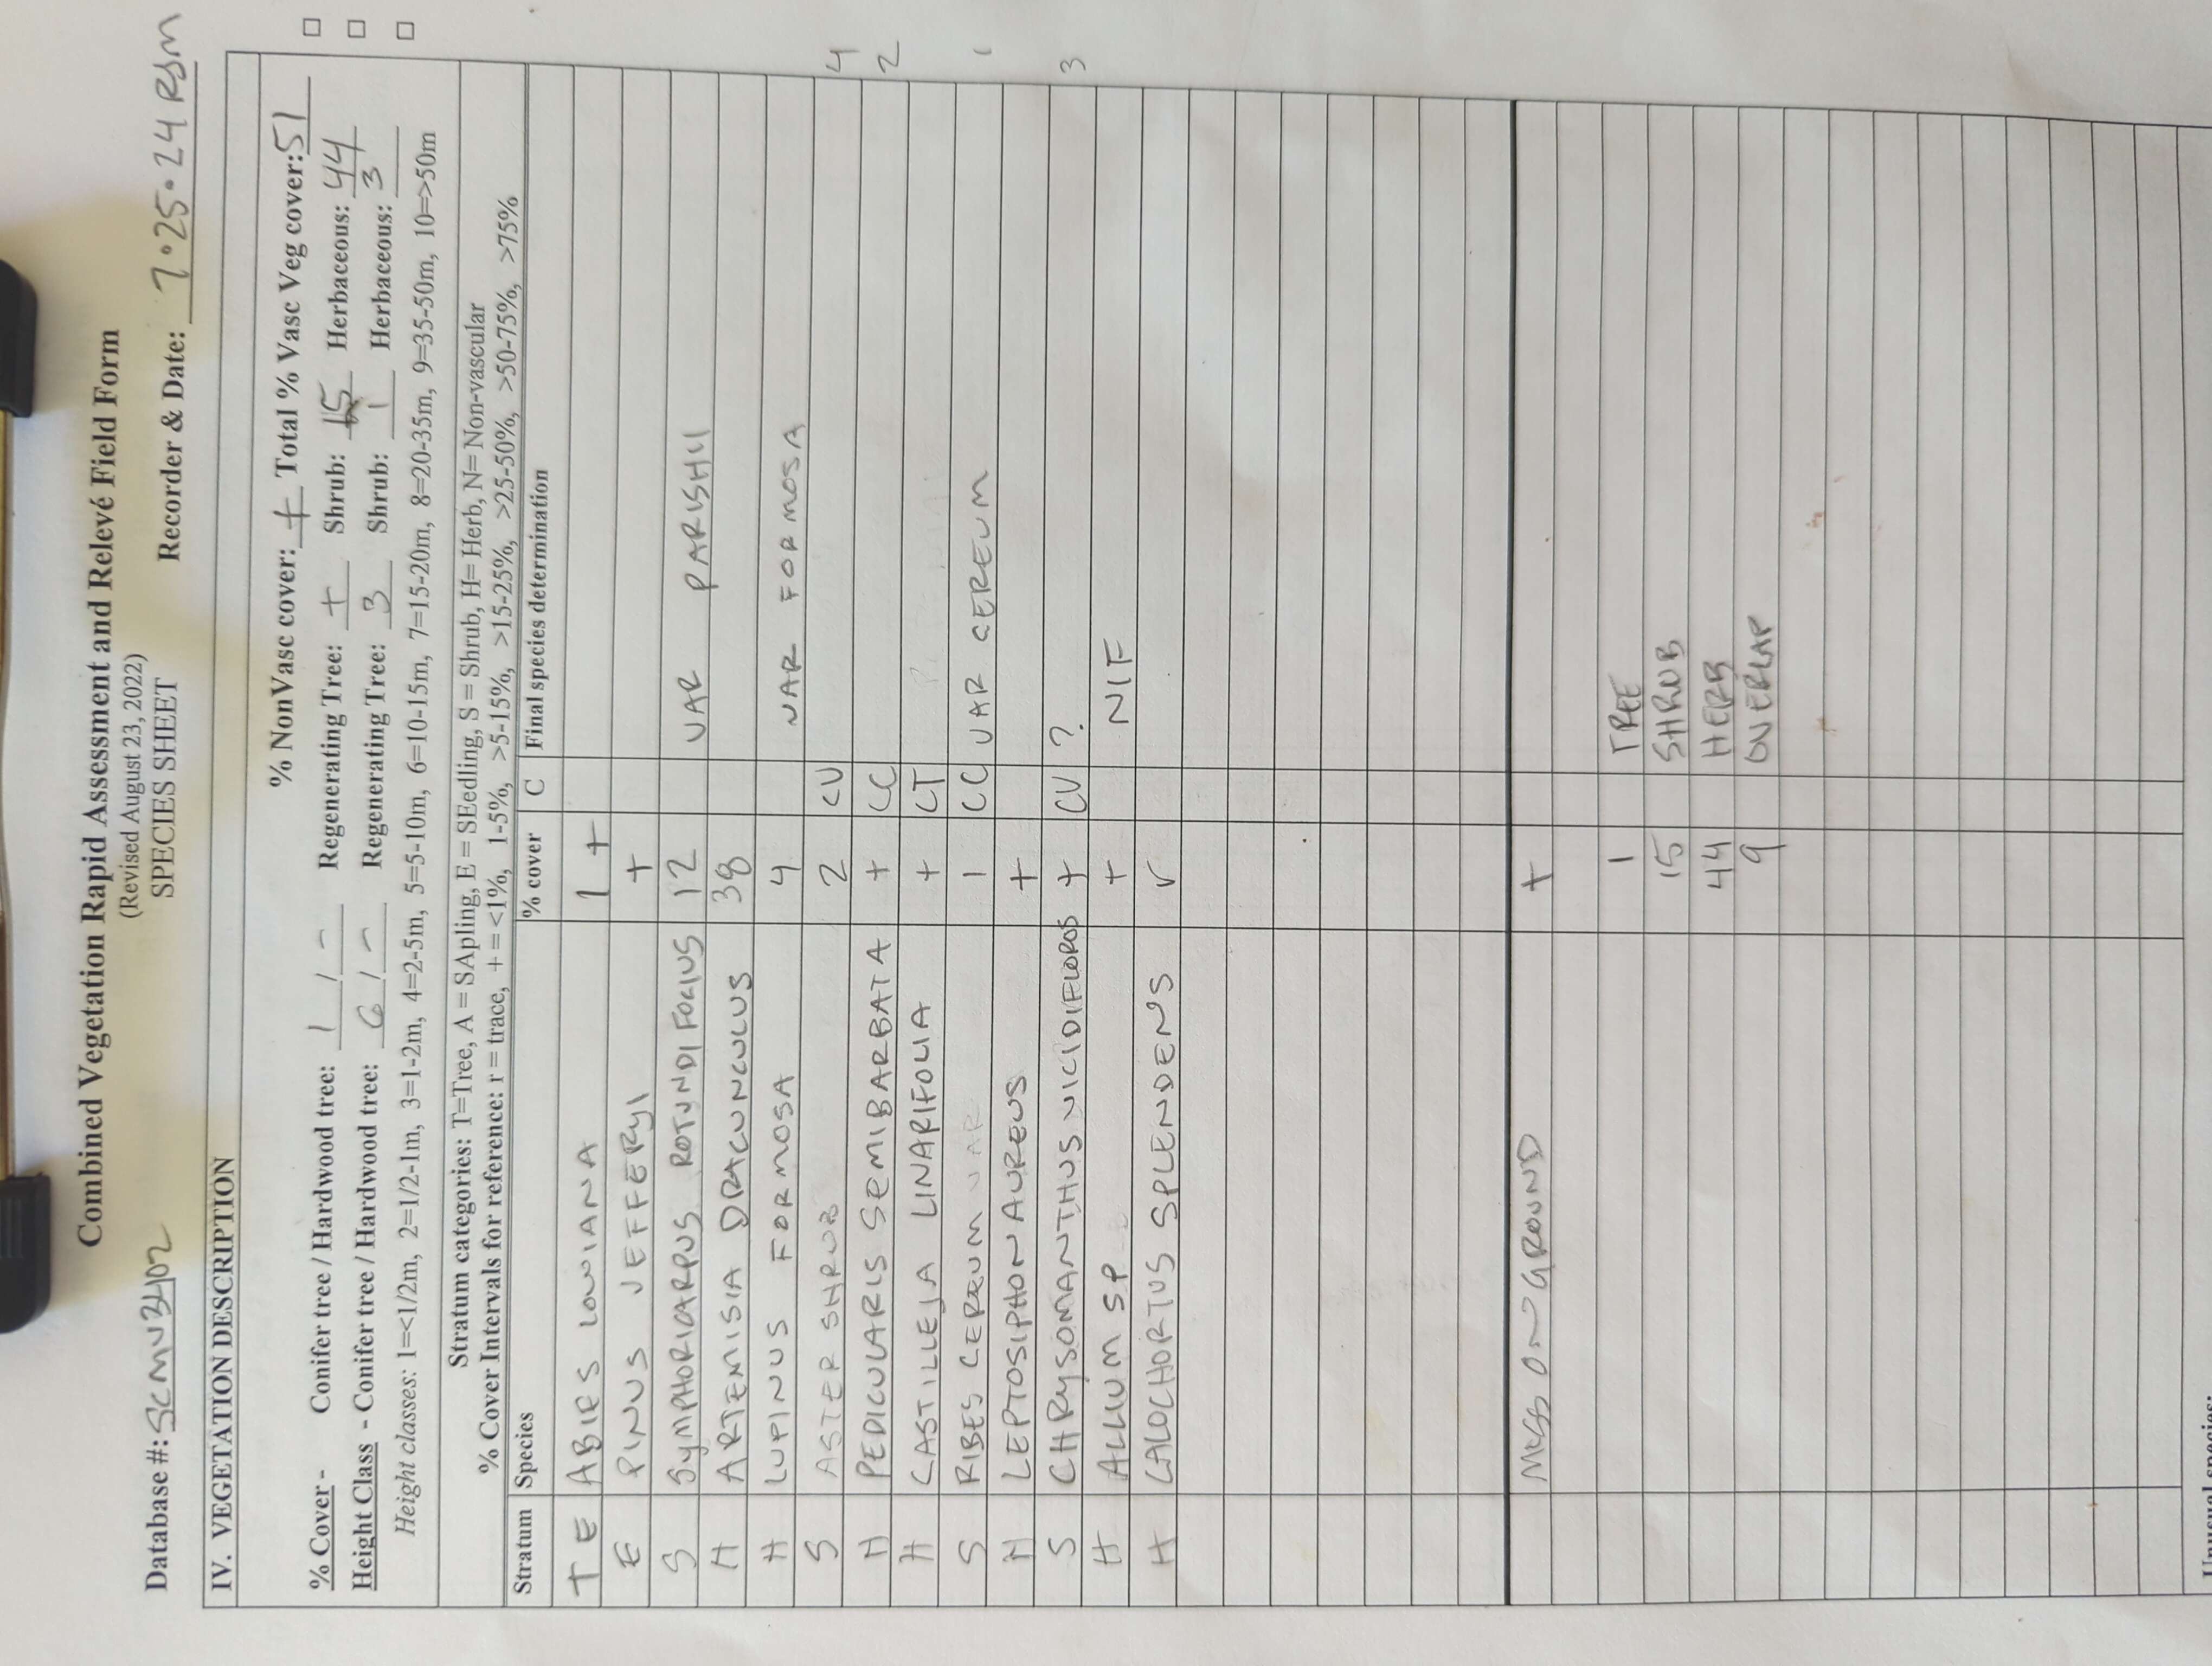 Combined Vegetation Rapid Assessment and Relevé Field Form
(Revised August 23, 2022)
SPECIES SHEET
Database #: SCMV3402 Recorder & Date: 7.25.24 RSM
IV. VEGETATION DESCRIPTION
% NonVasc cover: + Total % Vasc Veg cover: 51
% Cover - Conifer tree / Hardwood tree: 1 / - Regenerating Tree: + Shrub: 15 Herbaceous: 44
Height Class - Conifer tree / Hardwood tree: 6 / - Regenerating Tree: 3 Shrub: 1 Herbaceous: 3
Height classes: 1=<1/2m, 2=1/2-1m, 3=1-2m, 4=2-5m, 5=5-10m, 6=10-15m, 7=15-20m, 8=20-35m, 9=35-50m, 10=>50m
Stratum categories: T=Tree, A = SApling, E = SEedling, S = Shrub, H= Herb, N= Non-vascular
% Cover Intervals for reference: r = trace, + = <1%, 1-5%, >5-15%, >15-25%, >25-50%, >50-75%, >75%
Stratum Species % cover C Final species determination
T E ABIES LOWIANA 1 +
E PINUS JEFFERYI +
S SYMPHORICARPUS ROTUNDIFOLIUS 12 VAR PARISHII
H ARTEMISIA DRACUNCULUS 38
H LUPINUS FORMOSA 4 VAR FORMOSA
S ASTER SHRUB 2 CV 4
H PEDICULARIS SEMIBARBATA + CC 2
H CASTILLEJA LINARIFOLIA + CT
S RIBES CEREUM VAR 1 CC VAR CEREUM 1
H LEPTOSIPHON AUREUS +
S CHRYSOMANTHUS VICIDIFLOROS + CV ? 3
H ALLIUM SP. + NIF
H CALOCHORTUS SPLENDENS r
MOSS ON GROUND +
1 TREE
15 SHRUB
44 HERB
9 OVERLAP
Unusual species: